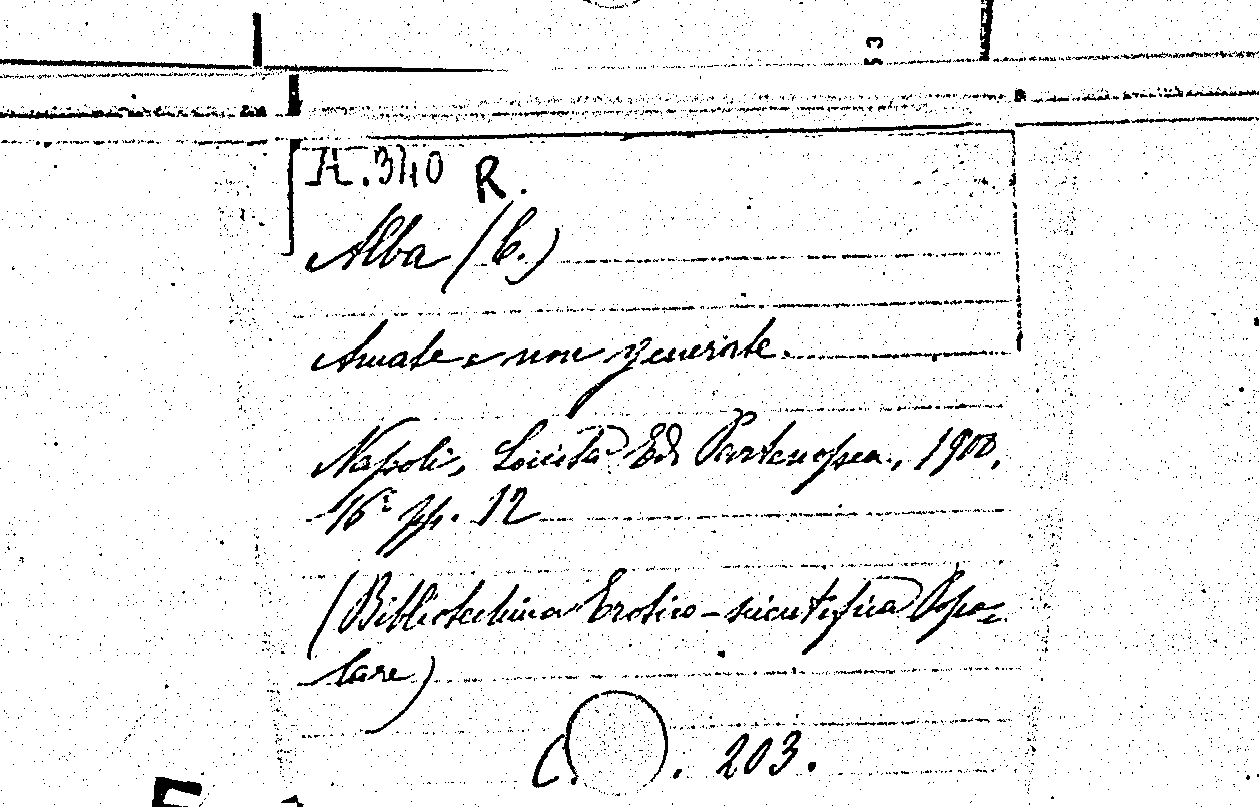 53
A.340 R.
Alba (C.)
Amate e non generate.
Napoli, Società Ed. Partenopea, 1900,
16° pp. 12
(Bibliotechina Erotico-scientifica Popo-
lare)
C. . 203.